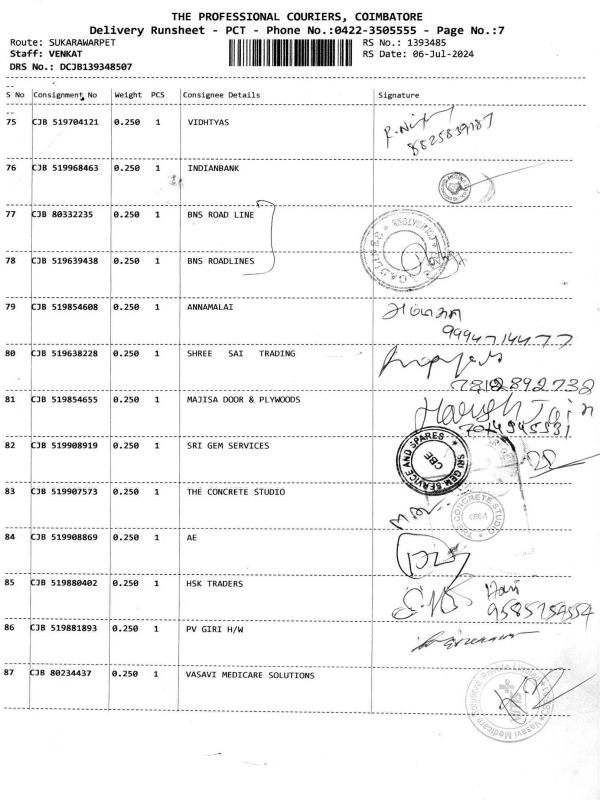 THE PROFESSIONAL COURIERS, COIMBATORE
Delivery Runsheet - PCT - Phone No.:0422-3505555 - Page No.:7
Route: SUKARAWARPET RS No.: 1393485
Staff: VENKAT RS Date: 06-Jul-2024
DRS No.: DCJB139348507
S No Consignment No Weight PCS Consignee Details Signature
75 CJB 519704121 0.250 1 VIDHTYAS
76 CJB 519968463 0.250 1 INDIANBANK
77 CJB 80332235 0.250 1 BNS ROAD LINE
78 CJB 519639438 0.250 1 BNS ROADLINES
79 CJB 519854608 0.250 1 ANNAMALAI
9994714477
80 CJB 519638228 0.250 1 SHREE SAI TRADING
7812892738
81 CJB 519854655 0.250 1 MAJISA DOOR & PLYWOODS Harish Jain
82 CJB 519908919 0.250 1 SRI GEM SERVICES SRI GEM SERVICE AND SPARES CBE
83 CJB 519907573 0.250 1 THE CONCRETE STUDIO THE CONCRETE STUDIO CBE-1
84 CJB 519908869 0.250 1 AE
85 CJB 519880402 0.250 1 HSK TRADERS Hari
86 CJB 519881893 0.250 1 PV GIRI H/W
87 CJB 80234437 0.250 1 VASAVI MEDICARE SOLUTIONS